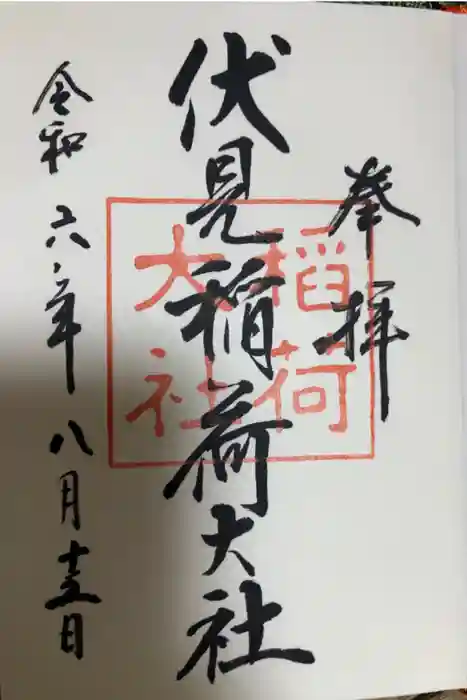 奉拝
伏見稲荷大社
稲荷
大社
令和六年八月十三日